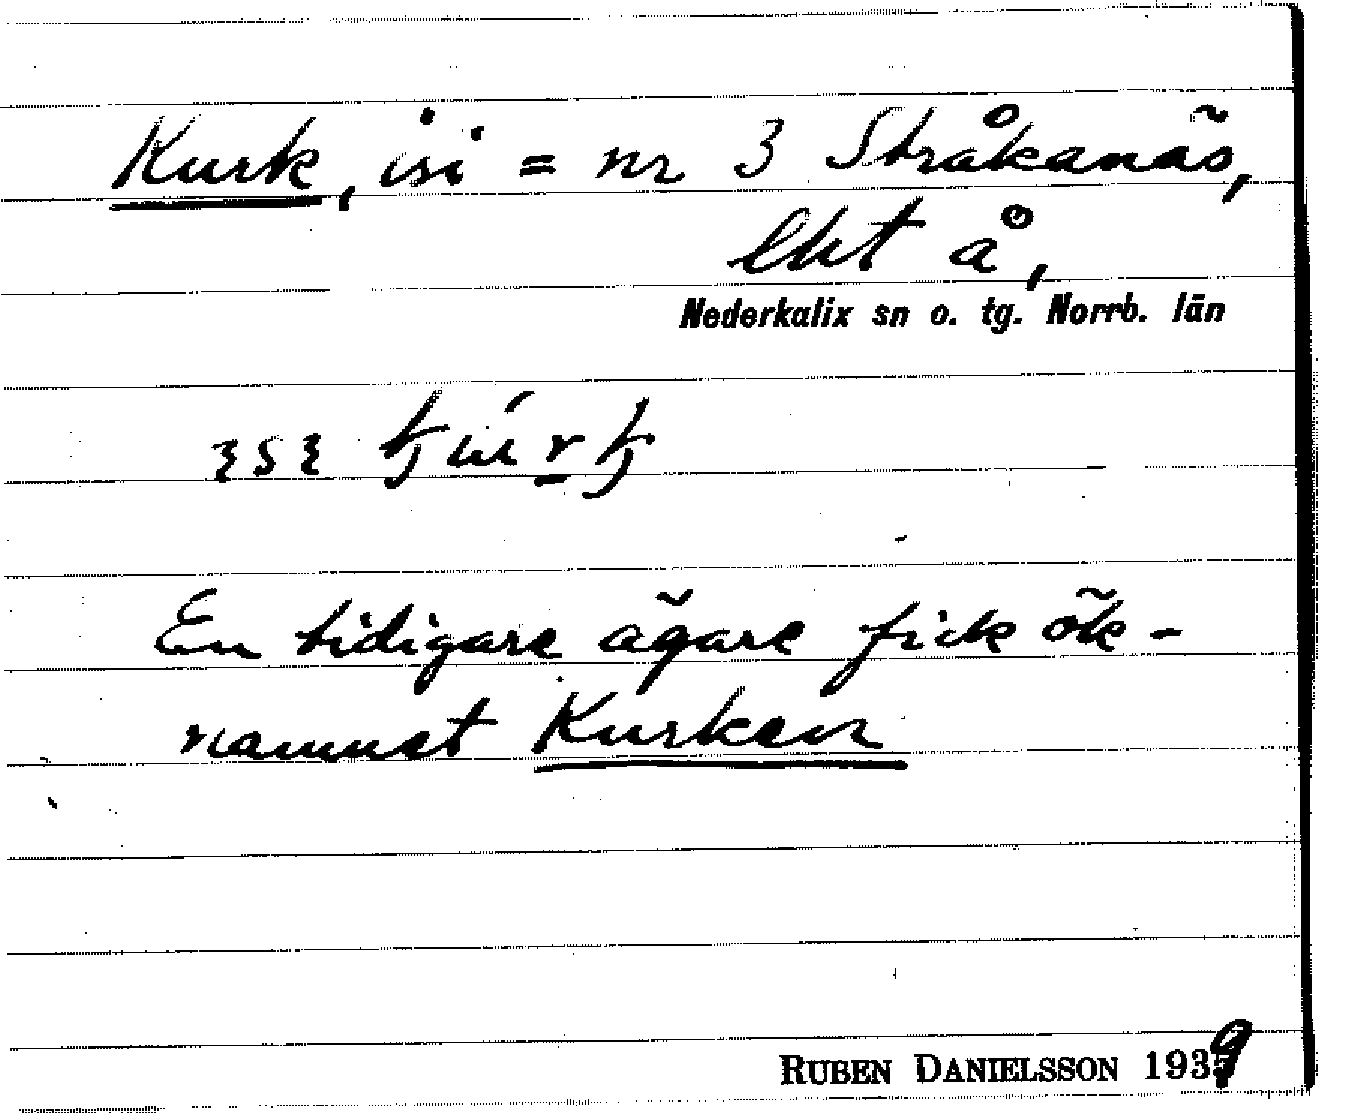 Kurk, isi = nr 3 Stråkanäs,
Ekt å,
Nederkalix sn o. tg. Norrb. län
En tidigare ägare fick ök-
namnet Kurken
RUBEN DANIELSSON 1939